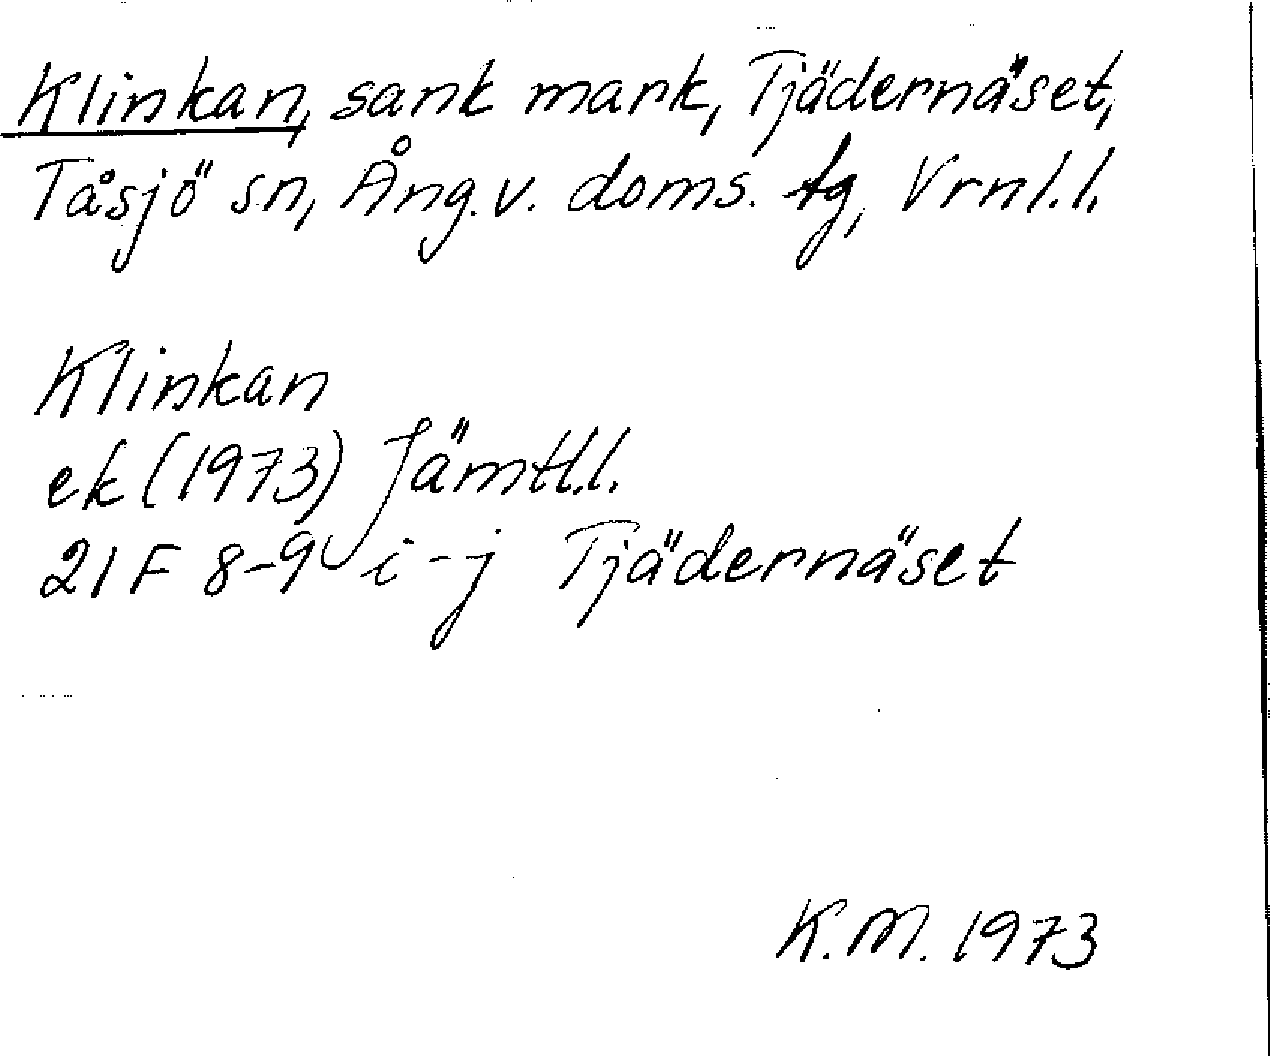 Klinkan, sank mark, Tjädernäset,
Tåsjö sn, Ång.v. doms. tg, Vrnl.l.
Klinkan
ek (1973) Jämtl.l.
21 F 8-9 i-j Tjädernäset
K.M. 1973